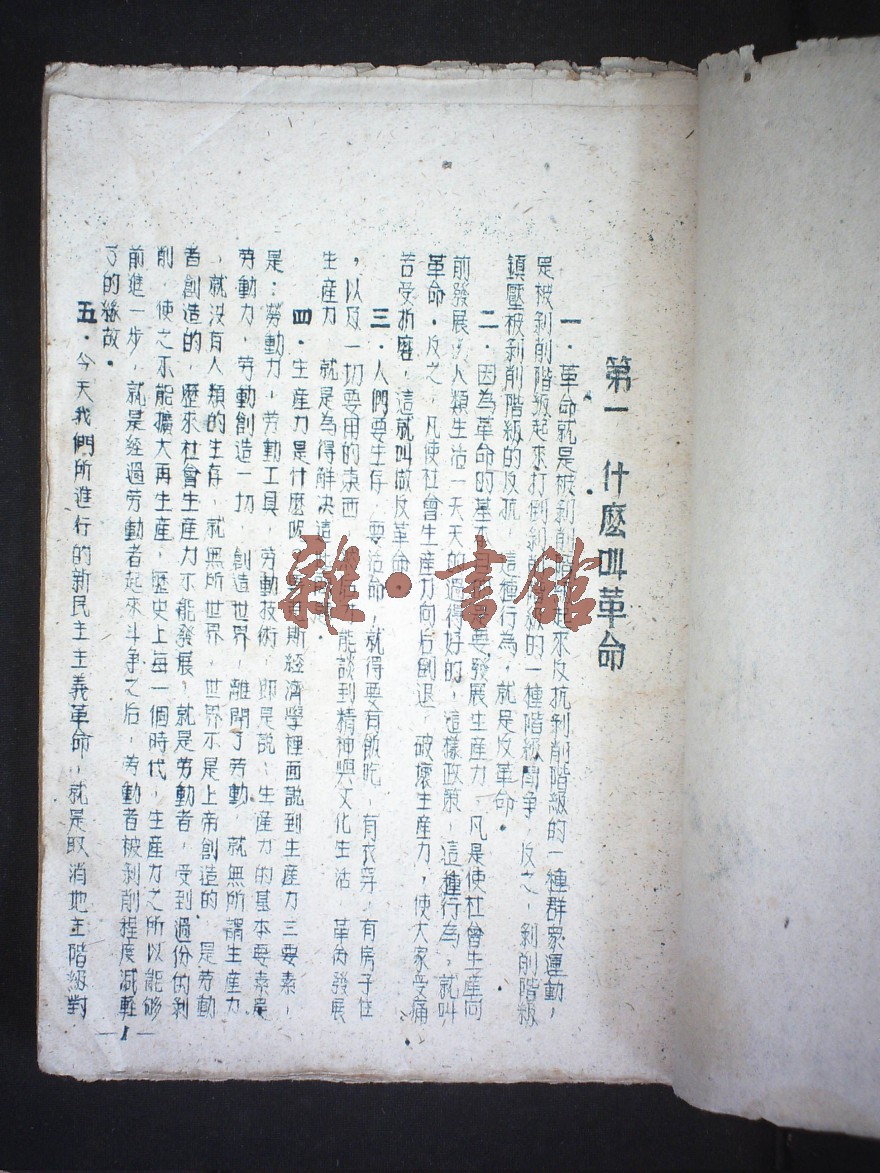 第一 什麽叫革命
一．革命就是被剥削階級起來反抗剥削階級的一種群衆運動，
是被剥削階級起來打倒剥削階級的一種階級鬥争，反之，剥削階級
鎮壓被剥削階級的反抗，這種行為，就是反革命．
二．因為革命的基本是要發展生産力，凡是使社會生産向
前發展，人類生活一天天的過得好的，這樣政策，這種行為，就叫
革命．反之，凡使社會生産力向后倒退，破壞生産力，使大家受痛
苦受折磨，這就叫做反革命
三．人們要生存，要活命，就得要有飯吃，有衣穿，有房子住
，以及一切要用的東西，能談到精神與文化生活 革命發展
生産力，就是為得解決這
四．生産力是什麽呢 斯經濟學裡面説到生産力三要素，
是：勞動力，勞動工具，勞動技術，即是説，生産力的基本要素是
勞動力，勞動創造一切，創造世界，離開了勞動，就無所謂生産力
，就没有人類的生存，就無所世界，世界不是上帝創造的，是勞動
者創造的，歷來社會生産力不能發展，就是勞動者，受到過份的剥
削，使之不能擴大再生産，歷史上每一個時代，生産力之所以能够
前進一步，就是經過勞動者起來斗争之后，勞動者被剥削程度減輕
了的緣故．
五．今天我們所進行的新民主主義革命，就是取消地主階級對
—1—
雜·書館